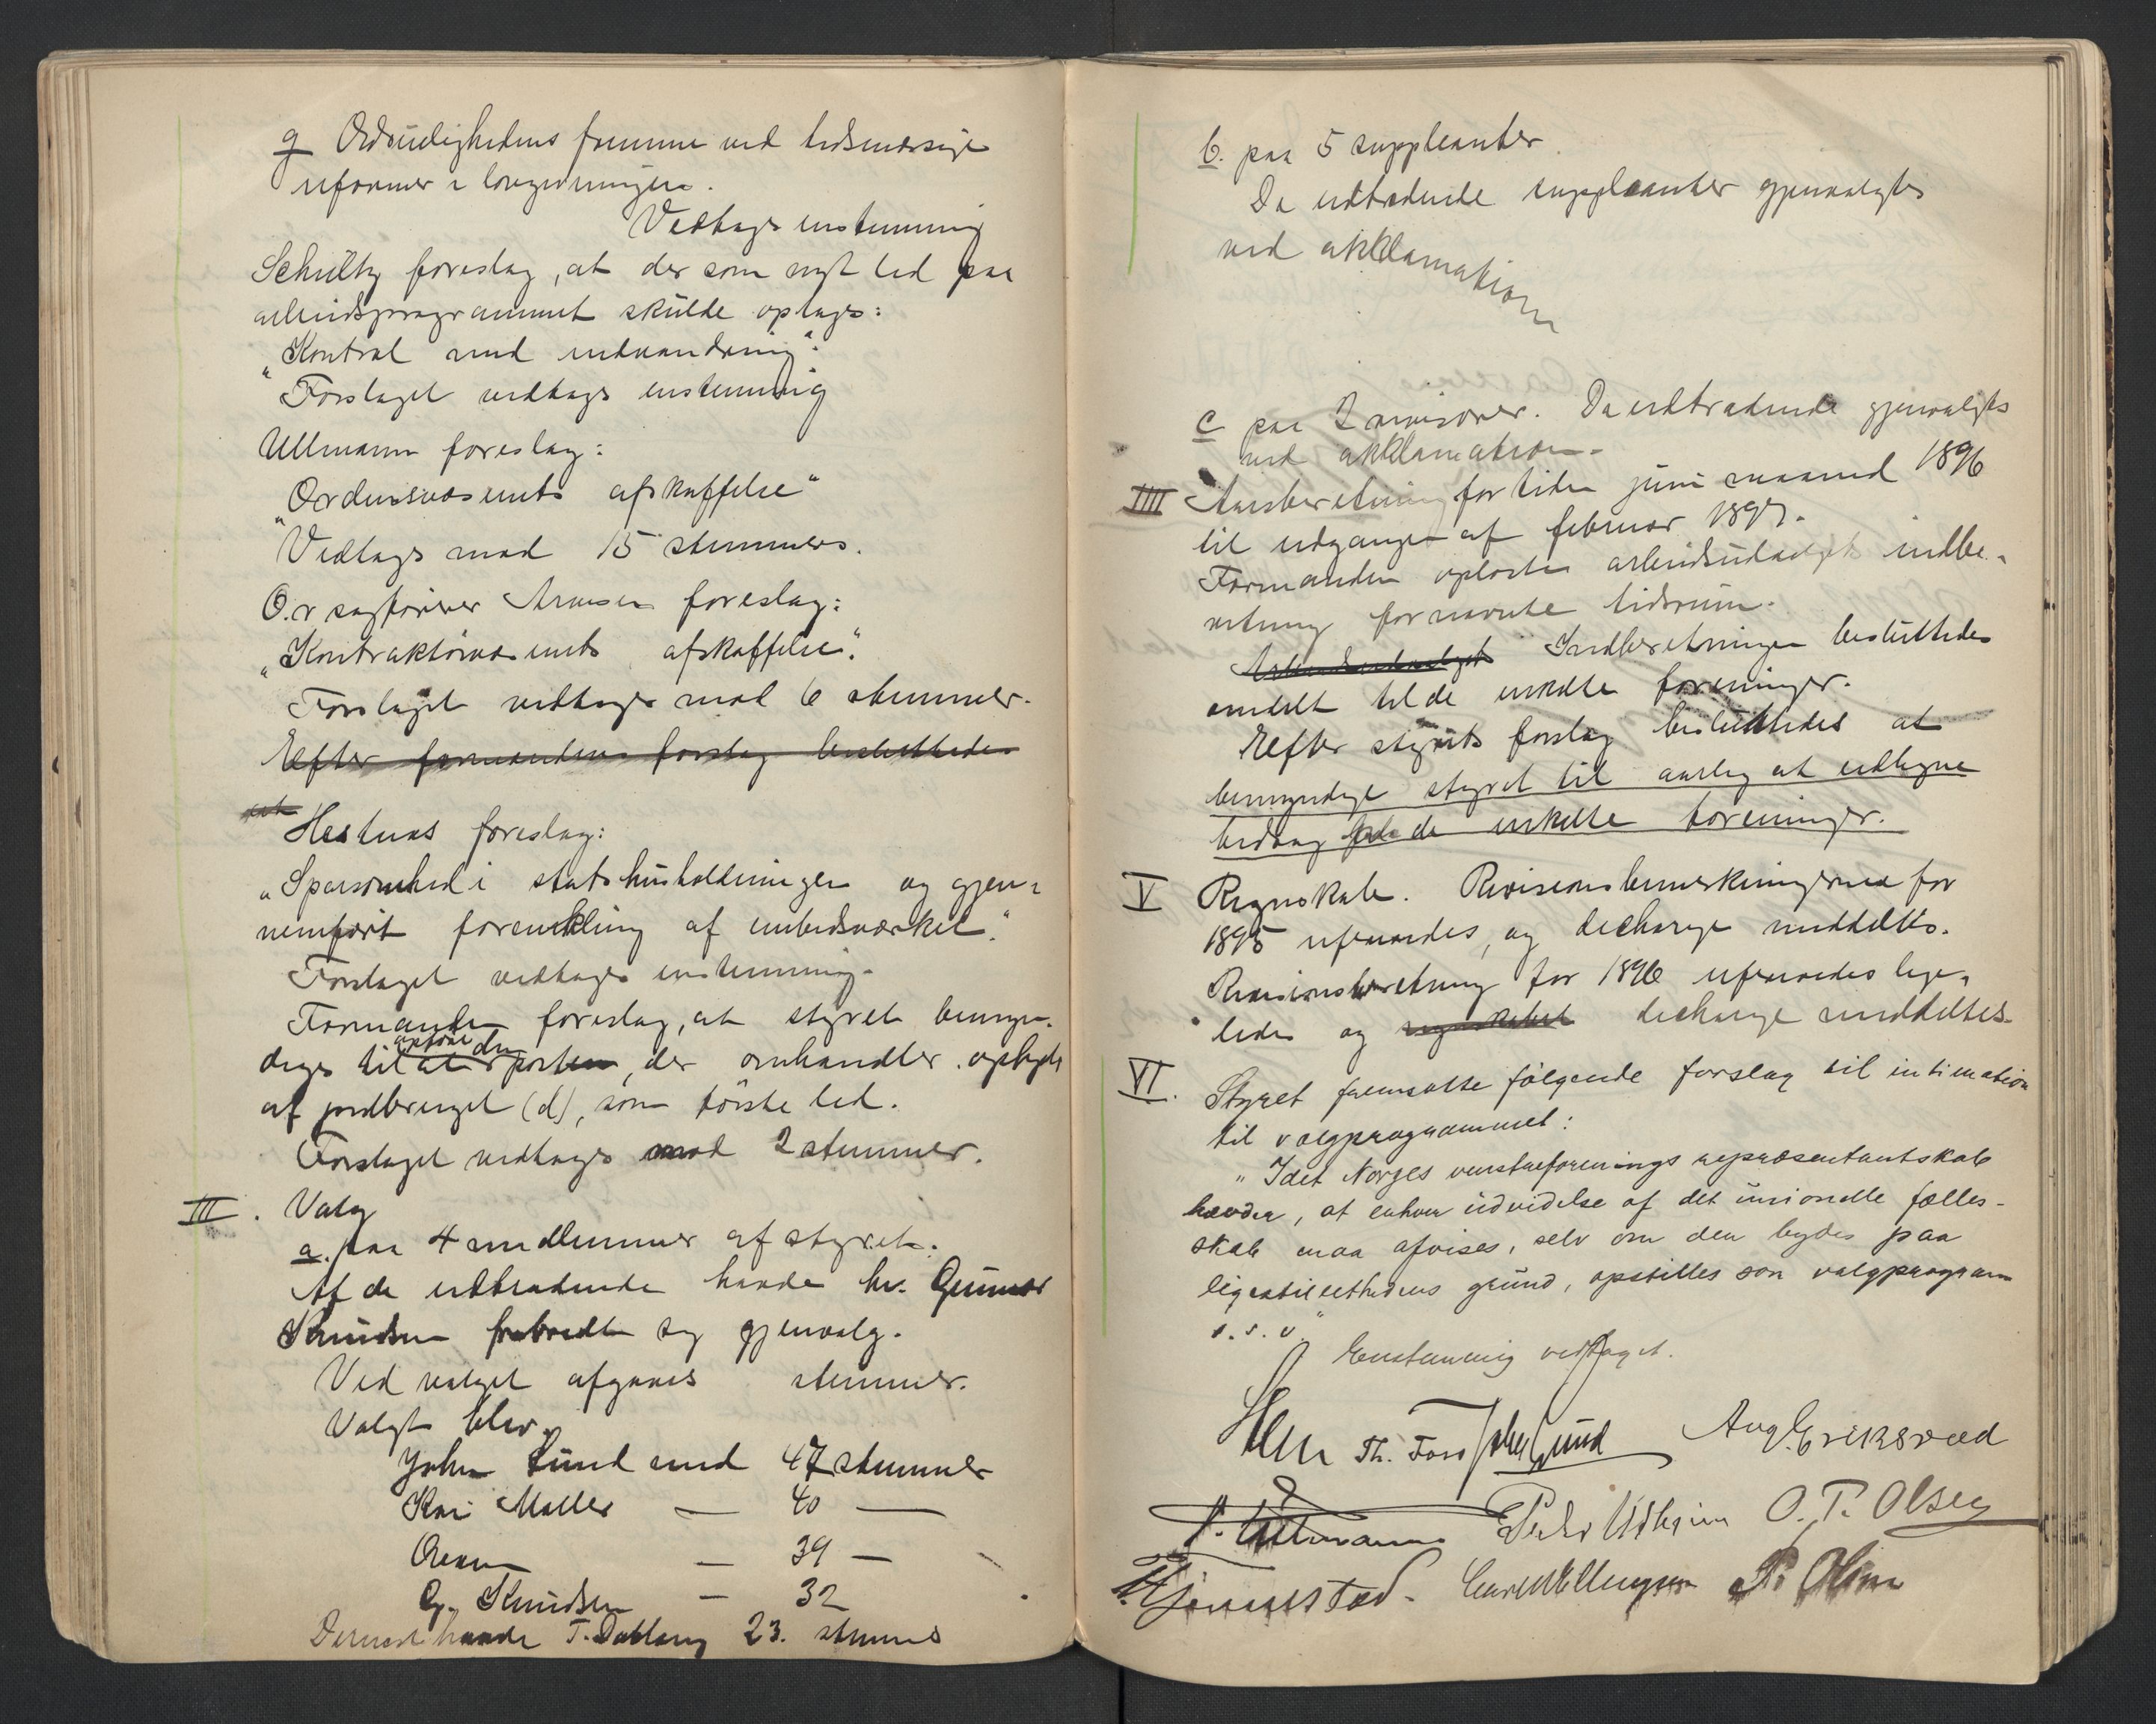 g Ædruelighedens fremme ved tidsmæssige
reformer i lovgivningen.
Vedtags enstemmig
Schultz foreslog, at der som nyt led paa
arbeidsprogrammet skulde optages:
"Kontrol med indvandring".
Forslaget vedtages enstemmig
Ullmann foreslog:
"Ordensvæsenets afskaffelse"
Vedtags mod 15 stemmer.
O.r sagfører Arnesen foreslog:
"Kontraktørvæsenets afskaffelse".
Forslaget vedtages mod 6 stemmer.
Efter formandens forslag besluttedes
at
Hestnes foreslog:
"Sparsomhed i statshusholdningen og gjen-
nemført forenkling af embedsværket."
Forslaget vedtages enstemmig.
Formanden foreslog, at styret bemyn-
diges til at opføre den posten, der omhandler ophjælp
af jordbruget (d), som første led.
Forslaget vedtages mod 2 stemmer.
III. Valg
a. paa 4 medlemmer af styret.
Af de udtrædende havde hr. Gunnar
Knudsen frabedt sig gjenvalg.
Ved valget afgaves stemmer.
Valgt blev
John Lund med 47 stemmer
Kai Møller — 40 —
— 39 —
G. Knudsen — 32
Dernæst havde T. 23. stemmer
b. paa 5 suppleanter.
De udtrædende suppleanter gjenvalgtes
ved akklamation
c paa 2 revisorer. De udtrædende gjenvalgtes
ved akklamation.
IIII Aarsberetning for tiden juni maaned 1896
til udgangen af februar 1897.
Formanden oplæste arbeidsudvalgets indbe-
retning for nævnte tidsrum.
Arbeidsudvalgets Indberetningen besluttedes
omdelt til de enkelte foreninger.
Efter styrets forslag besluttedes at
bemyndige styret til aarlig at udligne
bidrag paa de enkelte foreninger.
V Regnskab. Revisionsbemerkningerne for
1895 refereredes, og decharge meddeltes.
Revisionsberetning for 1896 refereredes lige-
ledes og regnskabet decharge meddeltes.
VI. Styret fremsatte følgende forslag til intimation
til valgprogrammet:
"Idet Norges venstreforenings repræsentantskab
hævder, at enhver udvidelse af det unionelle fælles-
skab maa afvises, selv om den bydes paa
ligestillethedens grund, opstilles som valgprogram
o.s.v."
Enstemmig vedtaget.
Th. Foss John Lund Aug. Eriksrød
V. Ullmann Peder O. T. Olsen